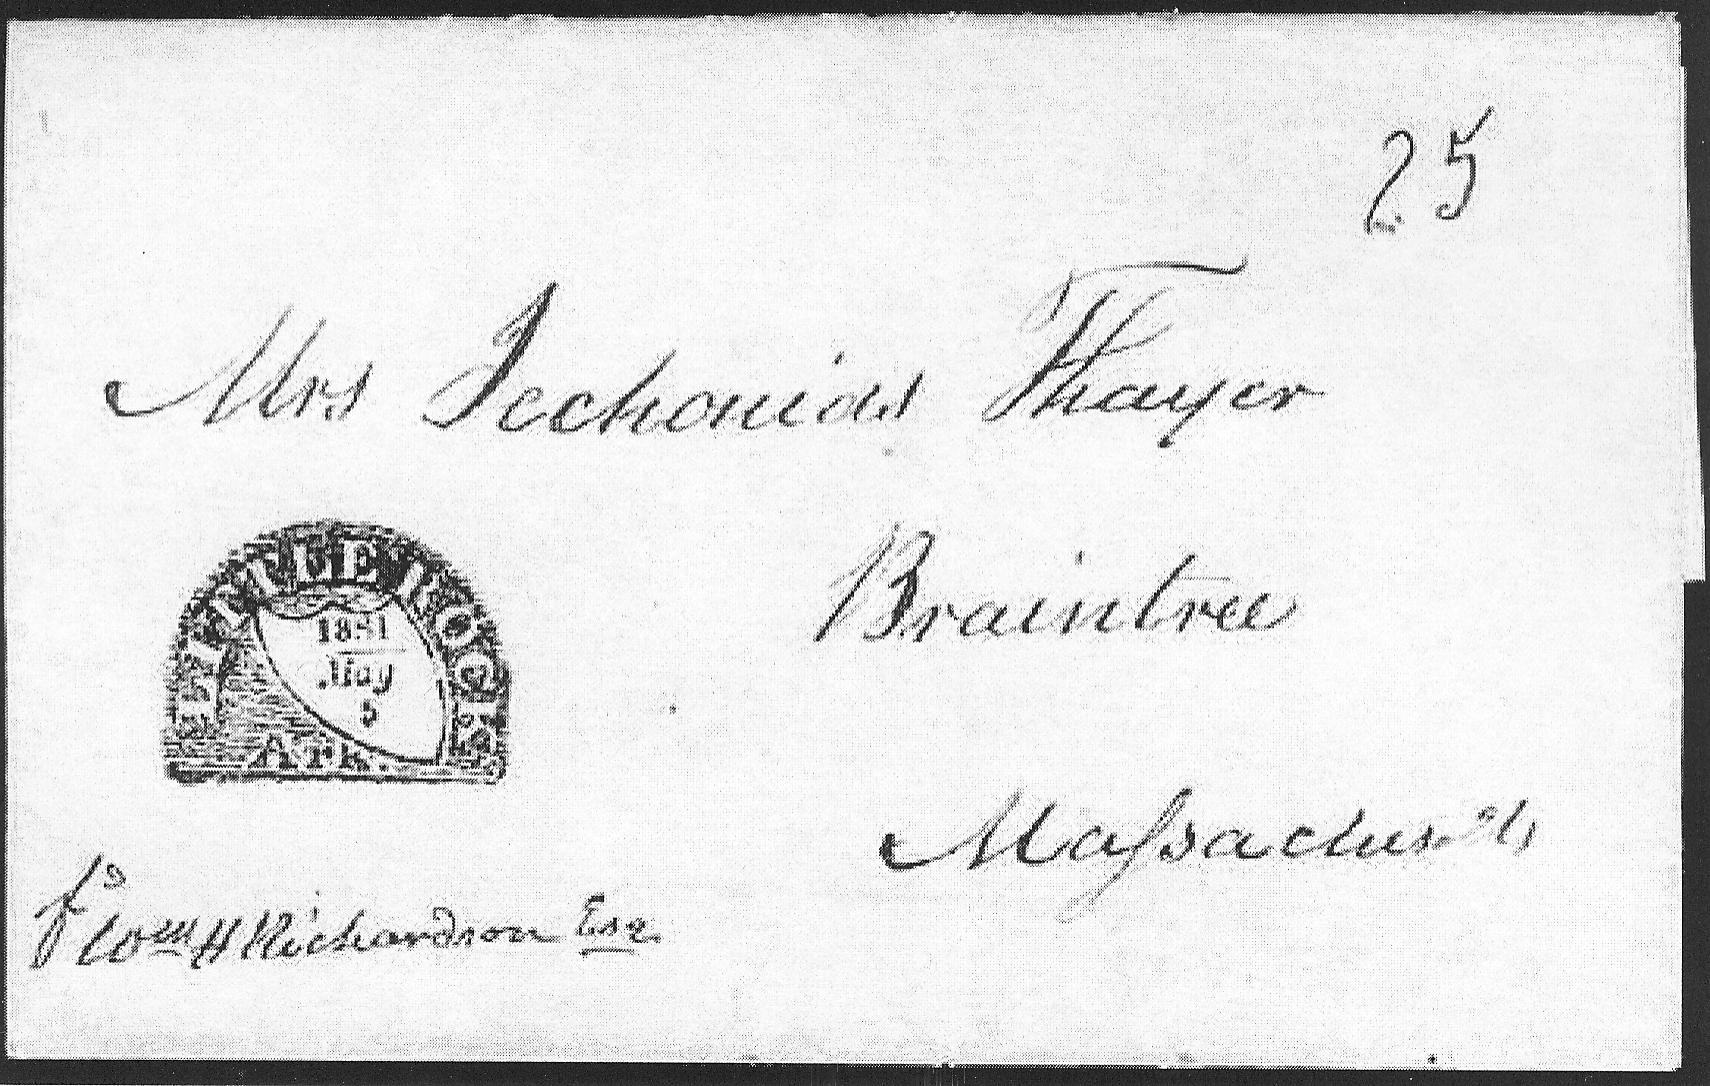 25
Mrs Jechonias Thayer
LITTLE ROCK
1831
May
5
Ark.
Braintree
Maſsachusetts
Wm H Richardson Esq.